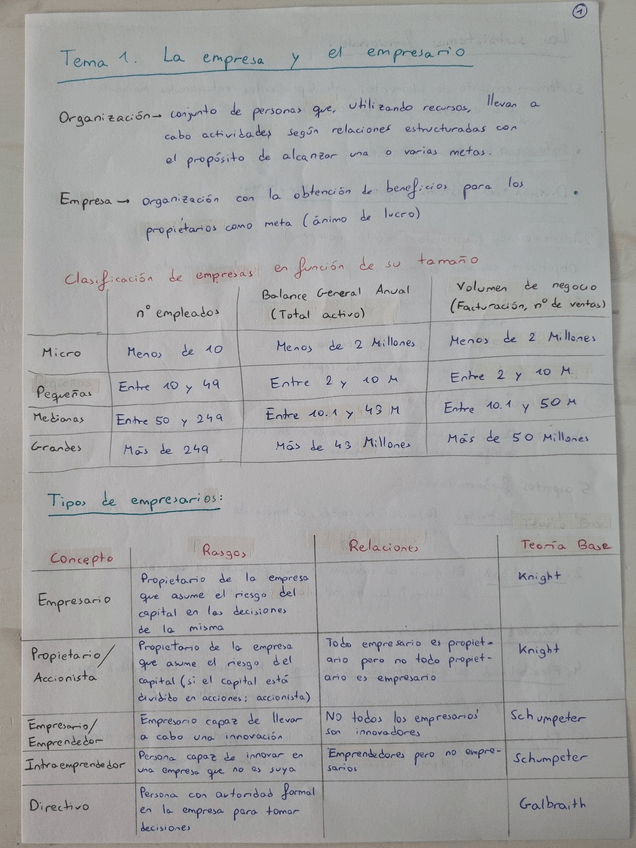 1
Tema 1. La empresa y el empresario
Organización → conjunto de personas que, utilizando recursos, llevan a
cabo actividades según relaciones estructuradas con
el propósito de alcanzar una o varias metas.
Empresa → organización con la obtención de beneficios para los
propietarios como meta (ánimo de lucro)
Clasificación de empresas en función de su tamaño
nº empleados
Balance General Anual
(Total activo)
Volumen de negocio
(Facturación, nº de ventas)
Micro Menos de 10 Menos de 2 Millones Menos de 2 Millones
Pequeñas Entre 10 y 49 Entre 2 y 10 M Entre 2 y 10 M.
Medianas Entre 50 y 249 Entre 10.1 y 43 M Entre 10.1 y 50 M
Grandes Más de 249 Más de 43 Millones Más de 50 Millones
Tipos de empresarios:
Concepto Rasgos Relaciones Teoría Base
Empresario
Propietario de la empresa
que asume el riesgo del
capital en las decisiones
de la misma
Knight
Propietario/
Accionista
Propietario de la empresa
que asume el riesgo del
capital (si el capital está
dividido en acciones: accionista)
Todo empresario es propiet-
ario pero no todo propiet-
ario es empresario
Knight
Empresario/
Emprendedor
Empresario capaz de llevar
a cabo una innovación
NO todos los empresarios
son innovadores
Schumpeter
Intraemprendedor
Persona capaz de innovar en
una empresa que no es suya
Emprendedores pero no empre-
sarios
Schumpeter
Directivo
Persona con autoridad formal
en la empresa para tomar
decisiones
Galbraith